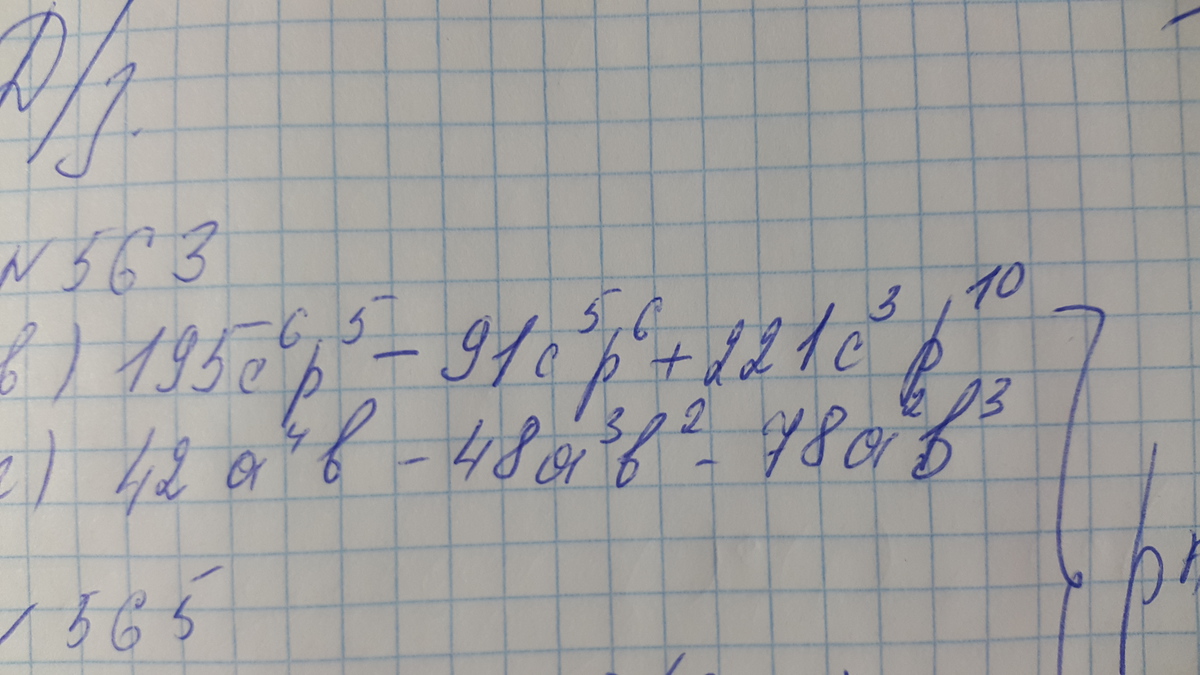 Д/з.
№ 563
в) 195c⁶p⁵ - 91c⁵p⁶ + 221c³p¹⁰
с) 42a⁴b - 48a³b² - 78a²b³
565